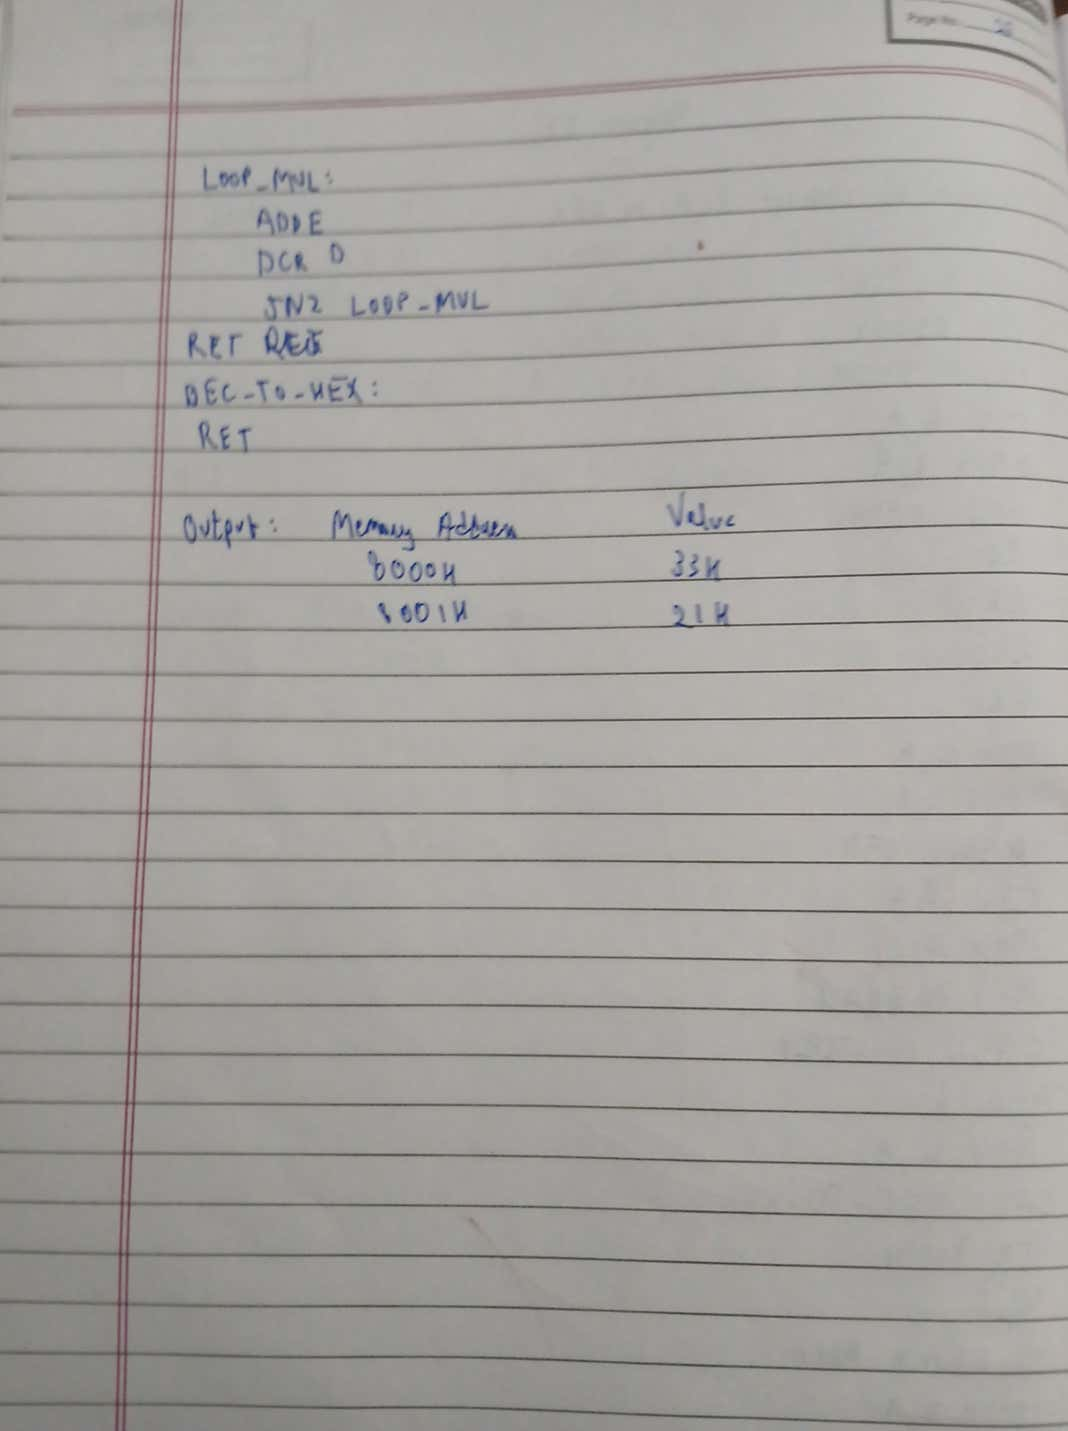 Page No. 28
LOOP_MUL:
ADD E
DCR D
JNZ LOOP_MUL
RET
DEC-TO-HEX:
RET
Output: Memory Address Value
8000H 33H
8001H 21H